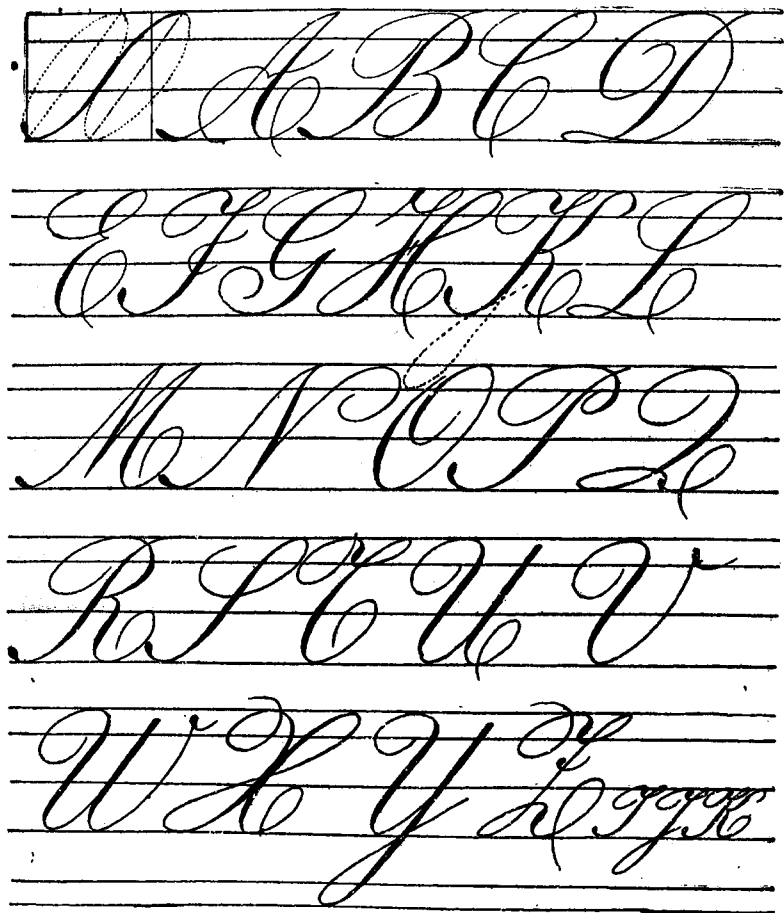 A B C D
E F G H K L
M N O P Q
R S T U V
W X Y Z I J K